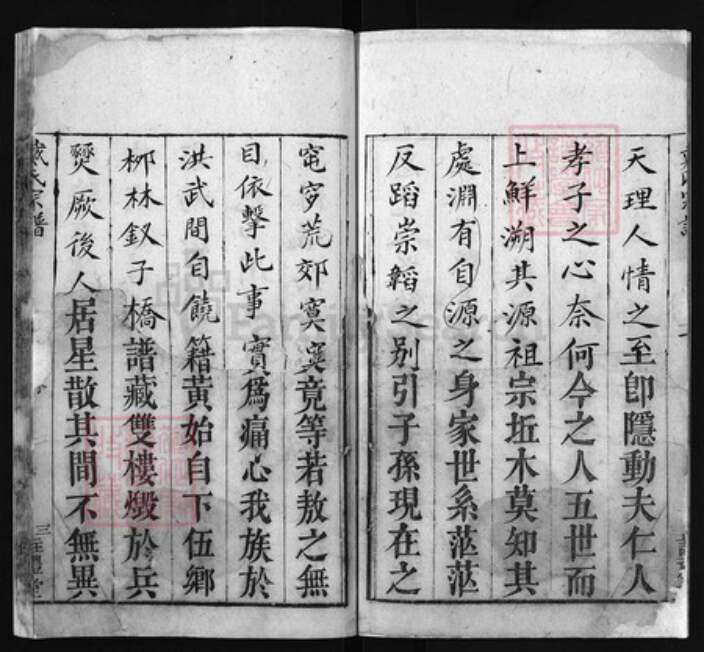 天理人情之至卽隱動夫仁人
孝子之心奈何今之人五世而
上鮮溯其源祖宗坵木莫知其
處淵有自源之身家世系茫茫
反蹈崇韜之别引子孫現在之
窀穸荒郊寞寞竟等若敖之無
目依擊此事實爲痛心我族於
洪武間自饒籍黃始自下伍鄉
栁林釵子橋譜藏雙樓燬於兵
爕厥後人居星散其間不無異
戴氏宗譜